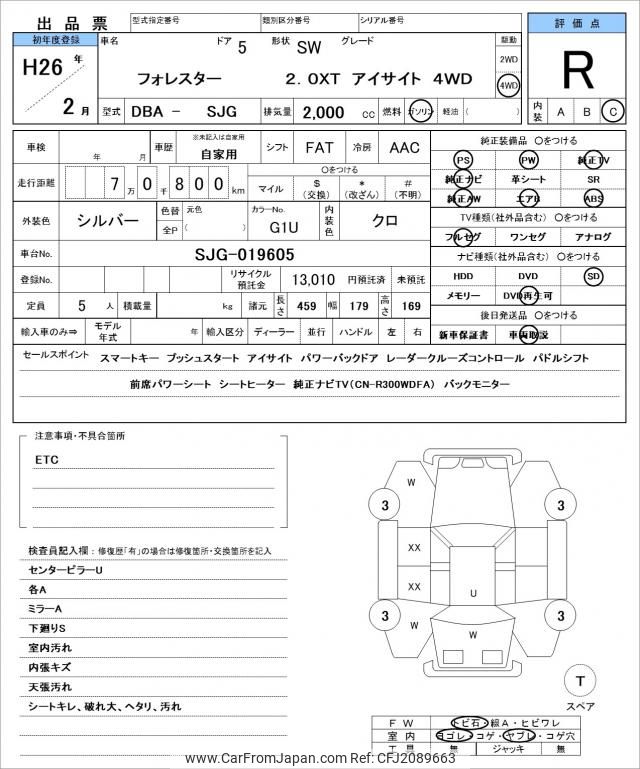 出品票 型式指定番号 類別区分番号 シリアル番号
評価点
初年度登録 車名 ドア 5 形状 SW グレード 駆動
H26 年
2 月
フォレスター 2.0XT アイサイト 4WD
2WD
4WD
R
型式 DBA － SJG 排気量 2,000 cc 燃料 ガソリン 軽油 ( )
内装 A B C
車検 年 月 車歴 ※未記入は自家用 自家用 シフト FAT 冷房 AAC
走行距離 7 万 0 千 8 0 0 km
〇をつける
マイル $(交換) *(改ざん) #(不明)
外装色 シルバー 色替 元色 全P ( ) カラーNo. G1U 内装色 クロ
車台No. SJG-019605
登録No. リサイクル預託金 13,010 円預託済 未預託
定員 5 人 積載量 kg 諸元 長さ 459 幅 179 高さ 169
輸入車のみ⇒ モデル年式 年 輸入区分 ディーラー 並行 ハンドル 左 右
純正装備品 〇をつける
PS PW 純正TV
純正ナビ 革シート SR
純正AW エアB ABS
TV種類(社外品含む) 〇をつける
フルセグ ワンセグ アナログ
ナビ種類(社外品含む) 〇をつける
HDD DVD SD
メモリー DVD再生可
後日発送品 〇をつける
新車保証書 車両取説
セールスポイント スマートキー プッシュスタート アイサイト パワーバックドア レーダークルーズコントロール パドルシフト
前席パワーシート シートヒーター 純正ナビTV(CN-R300WDFA) バックモニター
注意事項・不具合箇所
ETC
検査員記入欄：修復歴「有」の場合は修復箇所・交換箇所を記入
センターピラーU
各A
ミラーA
下廻りS
室内汚れ
内張キズ
天張汚れ
シートキレ、破れ大、ヘタリ、汚れ
W
3 3
XX
XX
U
3 3
W
W
T
スペア
FW トビ石・線A・ヒビワレ
室内 ヨゴレ・コゲ・ヤブレ・コゲ穴
工具 無 ジャッキ 無
www.CarFromJapan.com Ref: CFJ2089663